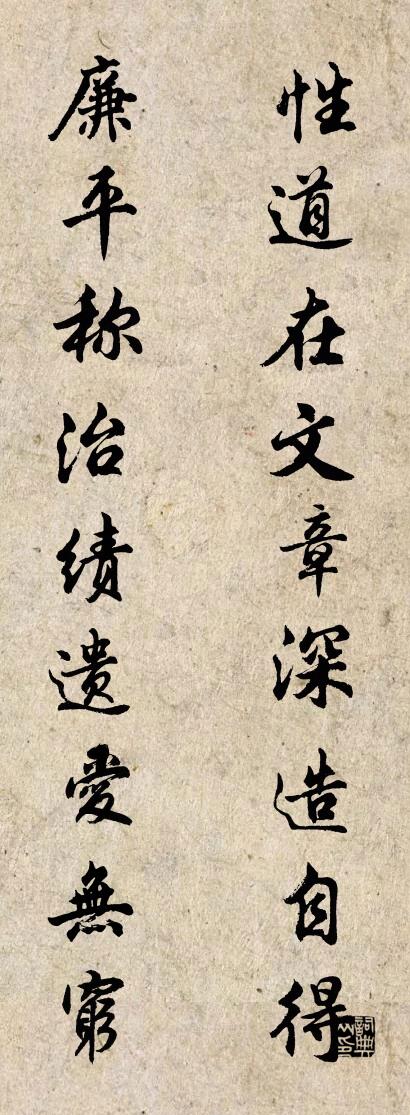 性道在文章深造自得
廉平称治绩遗爱無窮